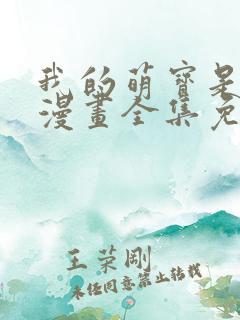 我的萌寶是
漫畫全集免
王荣剛
未经同意禁止转载